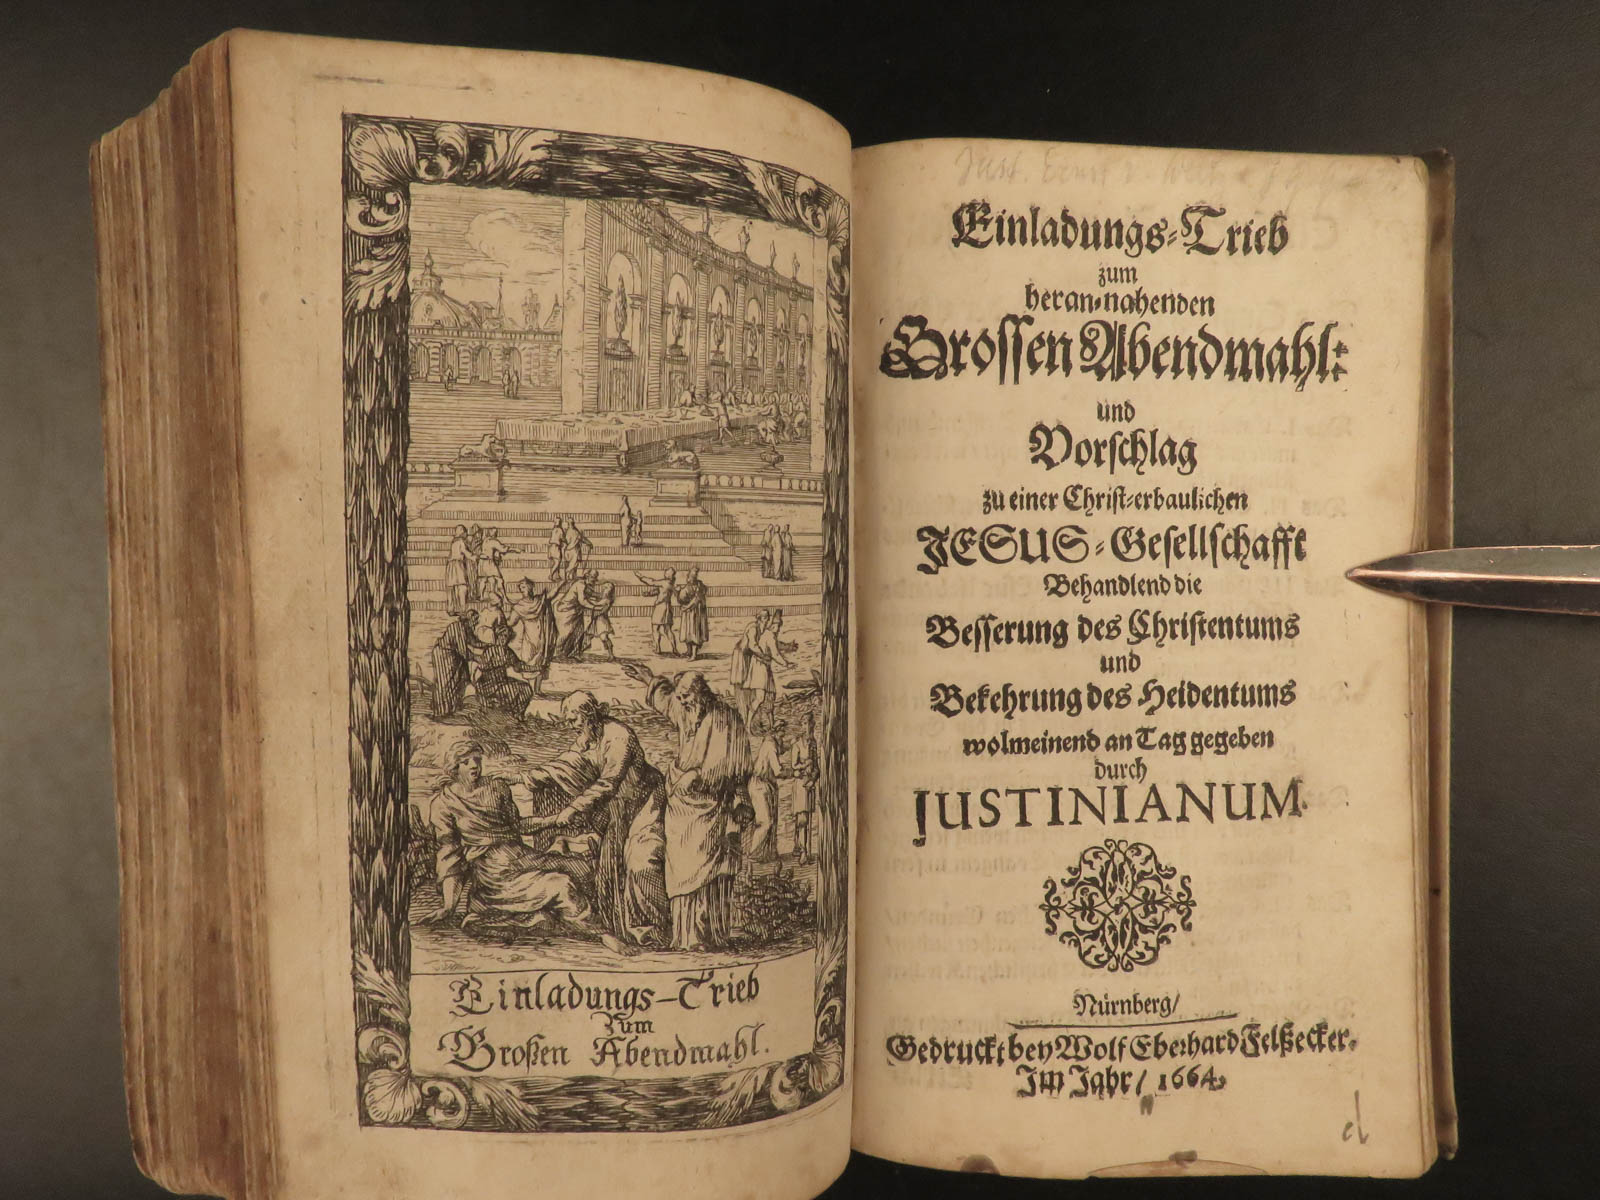 Einladungs-Trieb
Zum
Großen Abendmahl.
Just. Ernst v.
Einladungs-Trieb
zum
heran-nahenden
Grossen Abendmahl:
und
Vorschlag
zu einer Christ-erbaulichen
JESUS-Gesellschafft
Behandlend die
Besserung des Christentums
und
Bekehrung des Heidentums
wolmeinend an Tag gegeben
durch
JUSTINIANUM.
Nürnberg/
Gedruckt bey Wolf Eberhard Felßecker.
Im Jahr/ 1664.